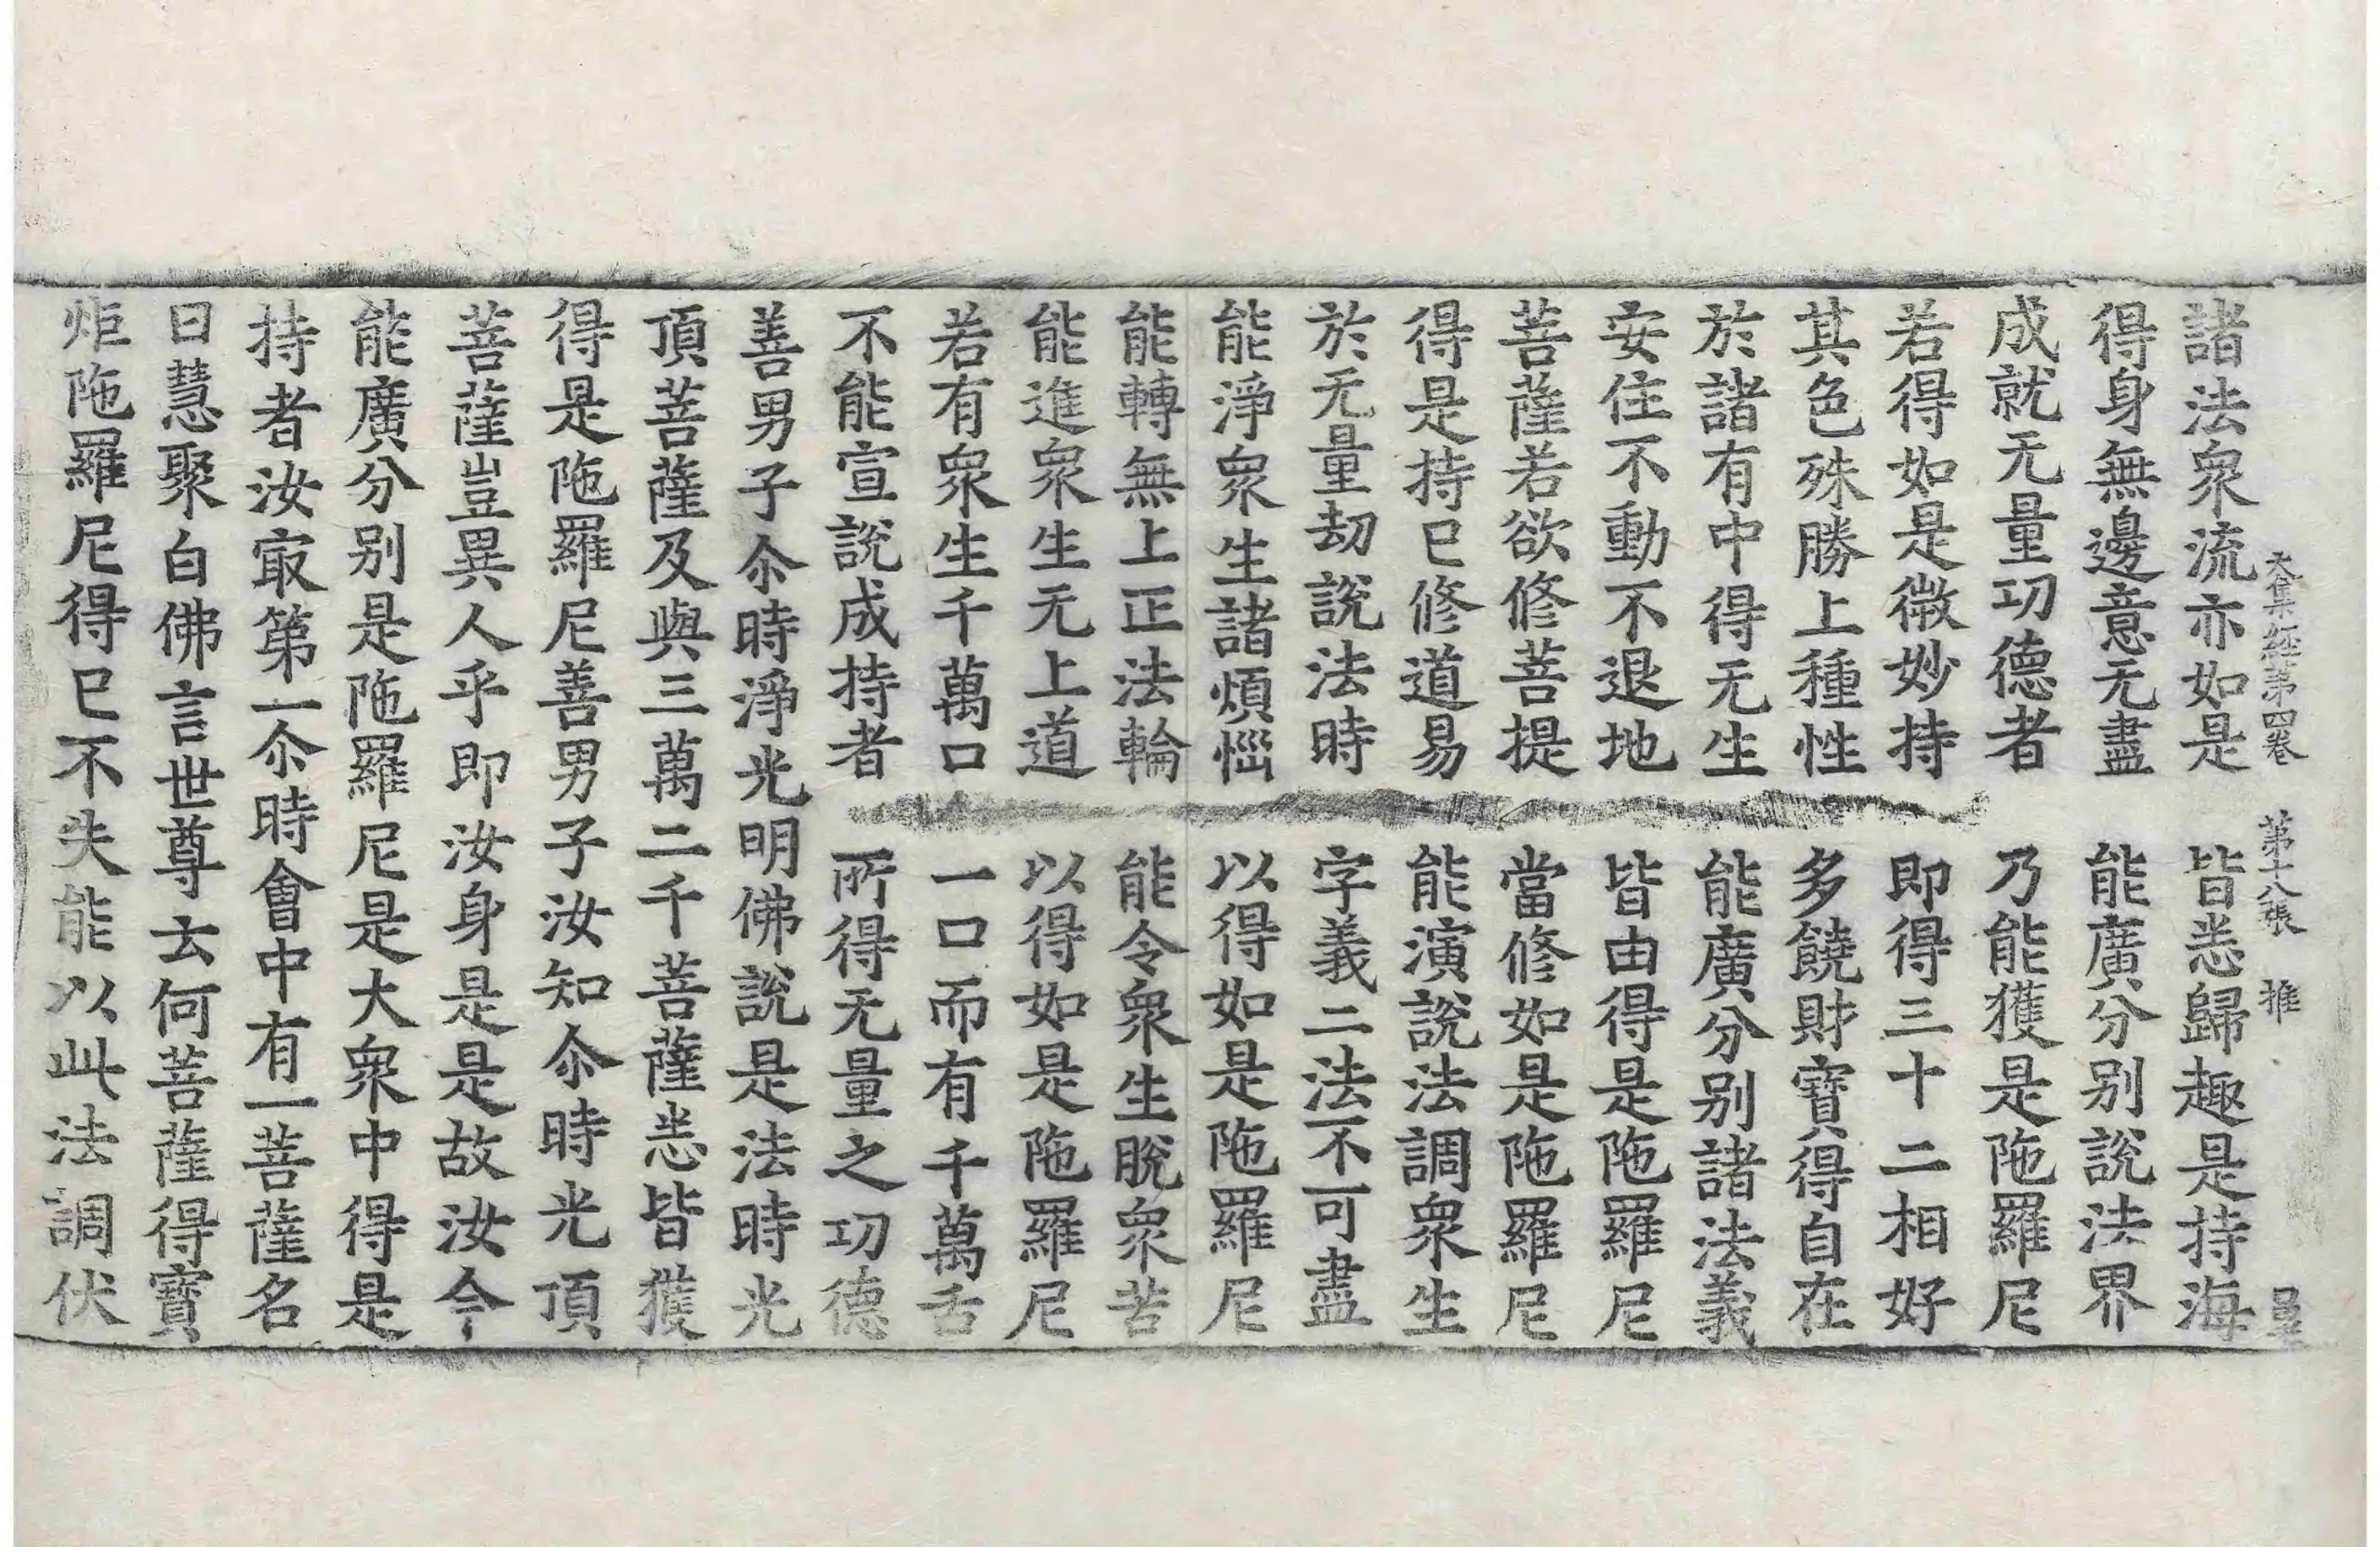 大集經第四卷　第十八張　推
諸法衆流亦如是　皆悉歸趣是持海
得身無邊意无盡　能廣分別說法界
成就无量功德者　乃能獲是陁羅尼
若得如是微妙持　即得三十二相好
其色殊勝上種性　多饒財寶得自在
於諸有中得无生　能廣分別諸法義
安住不動不退地　皆由得是陁羅尼
菩薩若欲修菩提　當修如是陁羅尼
得是持已修道易　能演說法調衆生
於无量劫說法時　字義二法不可盡
能淨衆生諸煩惱　以得如是陁羅尼
能轉無上正法輪　能令衆生脫衆苦
能進衆生无上道　以得如是陁羅尼
若有衆生千萬口　一口而有千萬舌
不能宣說成持者　所得无量之功德
善男子尒時淨光明佛說是法時光
頂菩薩及與三萬二千菩薩悉皆獲
得是陁羅尼善男子汝知尒時光頂
菩薩豈異人乎即汝身是是故汝今
能廣分別是陁羅尼是大衆中得是
持者汝㝡第一尒時會中有一菩薩名
曰慧聚白佛言世尊云何菩薩得寶
炬陁羅尼得已不失能以此法調伏